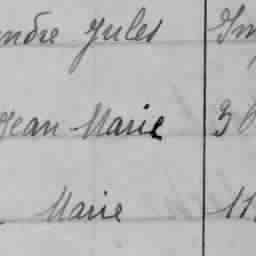 ndre Jules
Jean Marie 36
Marie 11